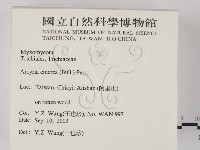 國立自然科學博物館
NATIONAL MUSEUM OF NATURAL SCIENCE
TAICHUNG, TAIWAN, R.O.CHINA
Myxomycota
Trichiales, Trichiaceae
Arcyria cinerea (Bull.) Pers.
Loc.: Taiwan, Chiayi, Alishan (阿里山)
on rotten wood
Col.: Y.Z. Wang No. WAN 997
Date: Sep.
Det.: Y.Z. Wang